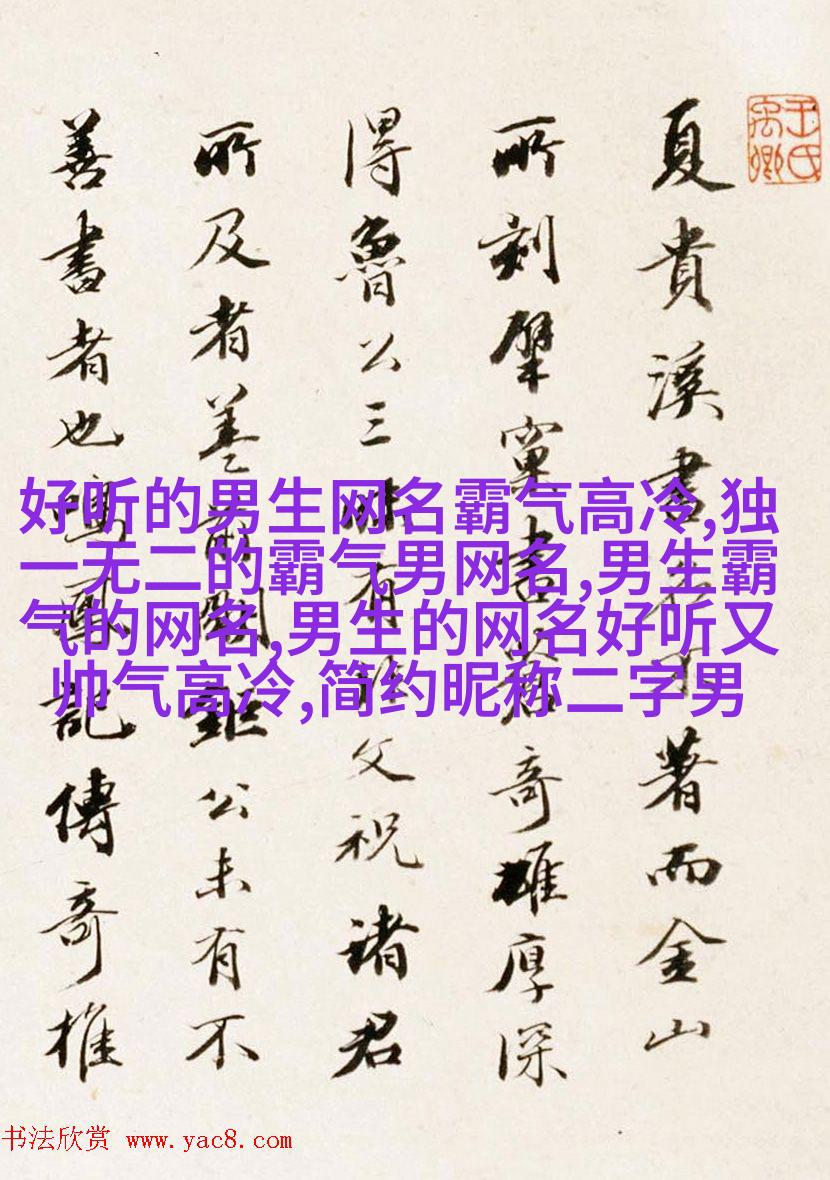 夏貴溪書名不著而金山
所刻擘窠書甚奇雄厚深
得魯公三昧有徐文祝諸君
所及者蓋前劉鉅公未有不
善書者也鳴鳳記傳奇推
好听的男生网名霸气高冷,独
一无二的霸气男网名,男生霸
气的网名,男生的网名好听又
帅气高冷,简约昵称二字男
书法欣赏 www.yac8.com